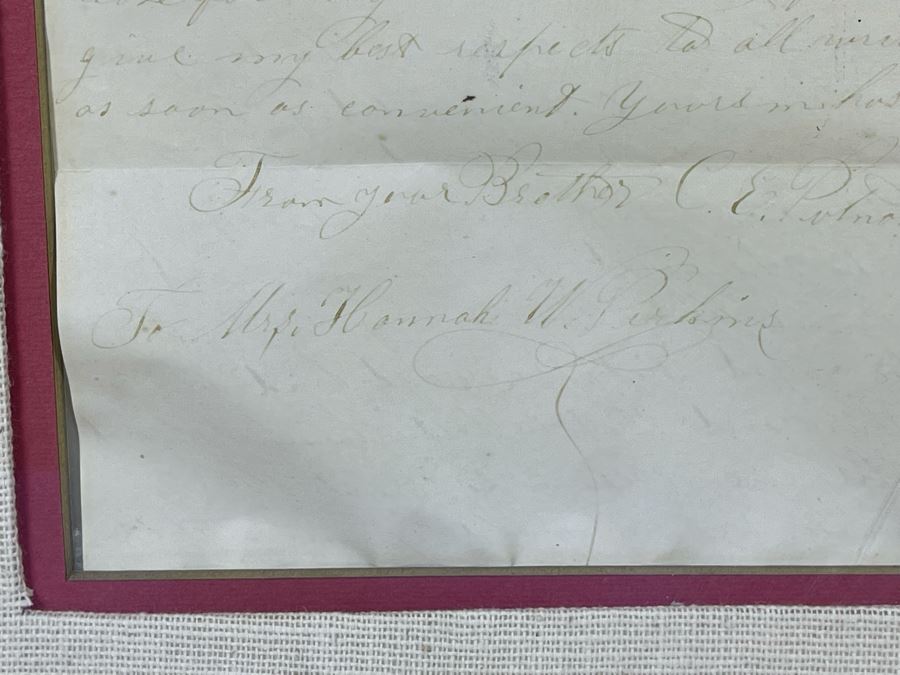 give my best respects to all
as soon as convenient. Yours
From your Brother C. E.
To Mrs. Hannah W. Perkins